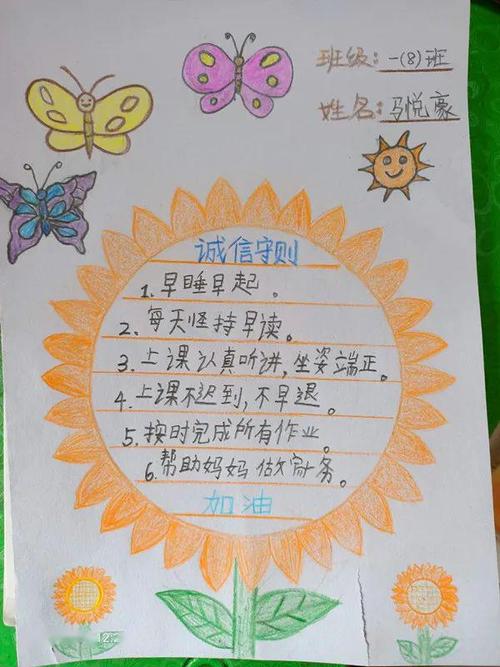 班级：一(8)班
姓名：马悦豪
诚信守则
1. 早睡早起。
2. 每天坚持早读。
3. 上课认真听讲，坐姿端正。
4. 上课不迟到，不早退。
5. 按时完成所有作业。
6. 帮助妈妈做家务。
加油